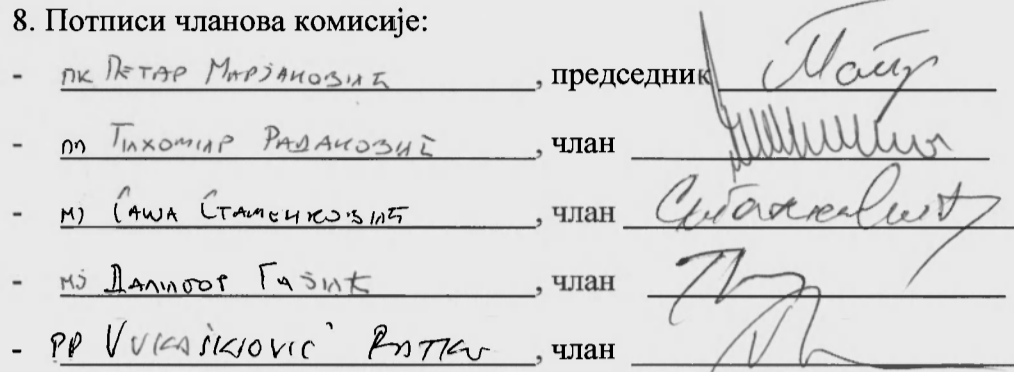 8. Потписи чланова комисије:
- пк Петар Марјановић, председник
- пп Тихомир Радаковић, члан
- мј Саша Стаменковић, члан
- мј Далибор Гашић, члан
- PP Vukašinović Ratko, члан